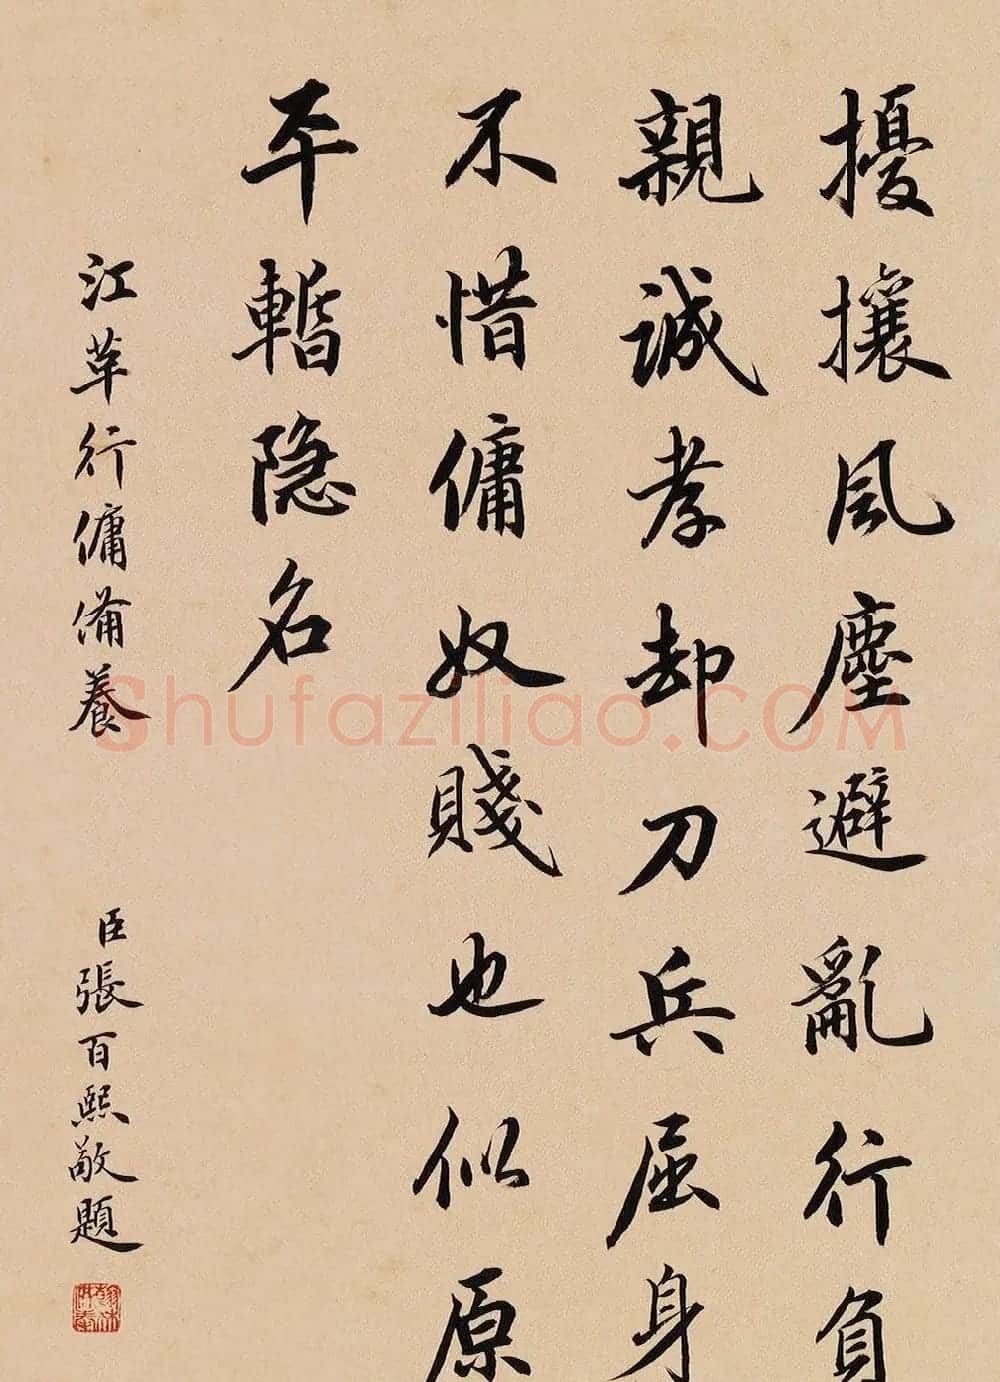 擾攘風塵避亂行負
親誠孝却刀兵屈身
不惜傭奴賤也似原
平暫隐名
江革行傭備養
臣張百熙敬題
Shufaziliao.COM